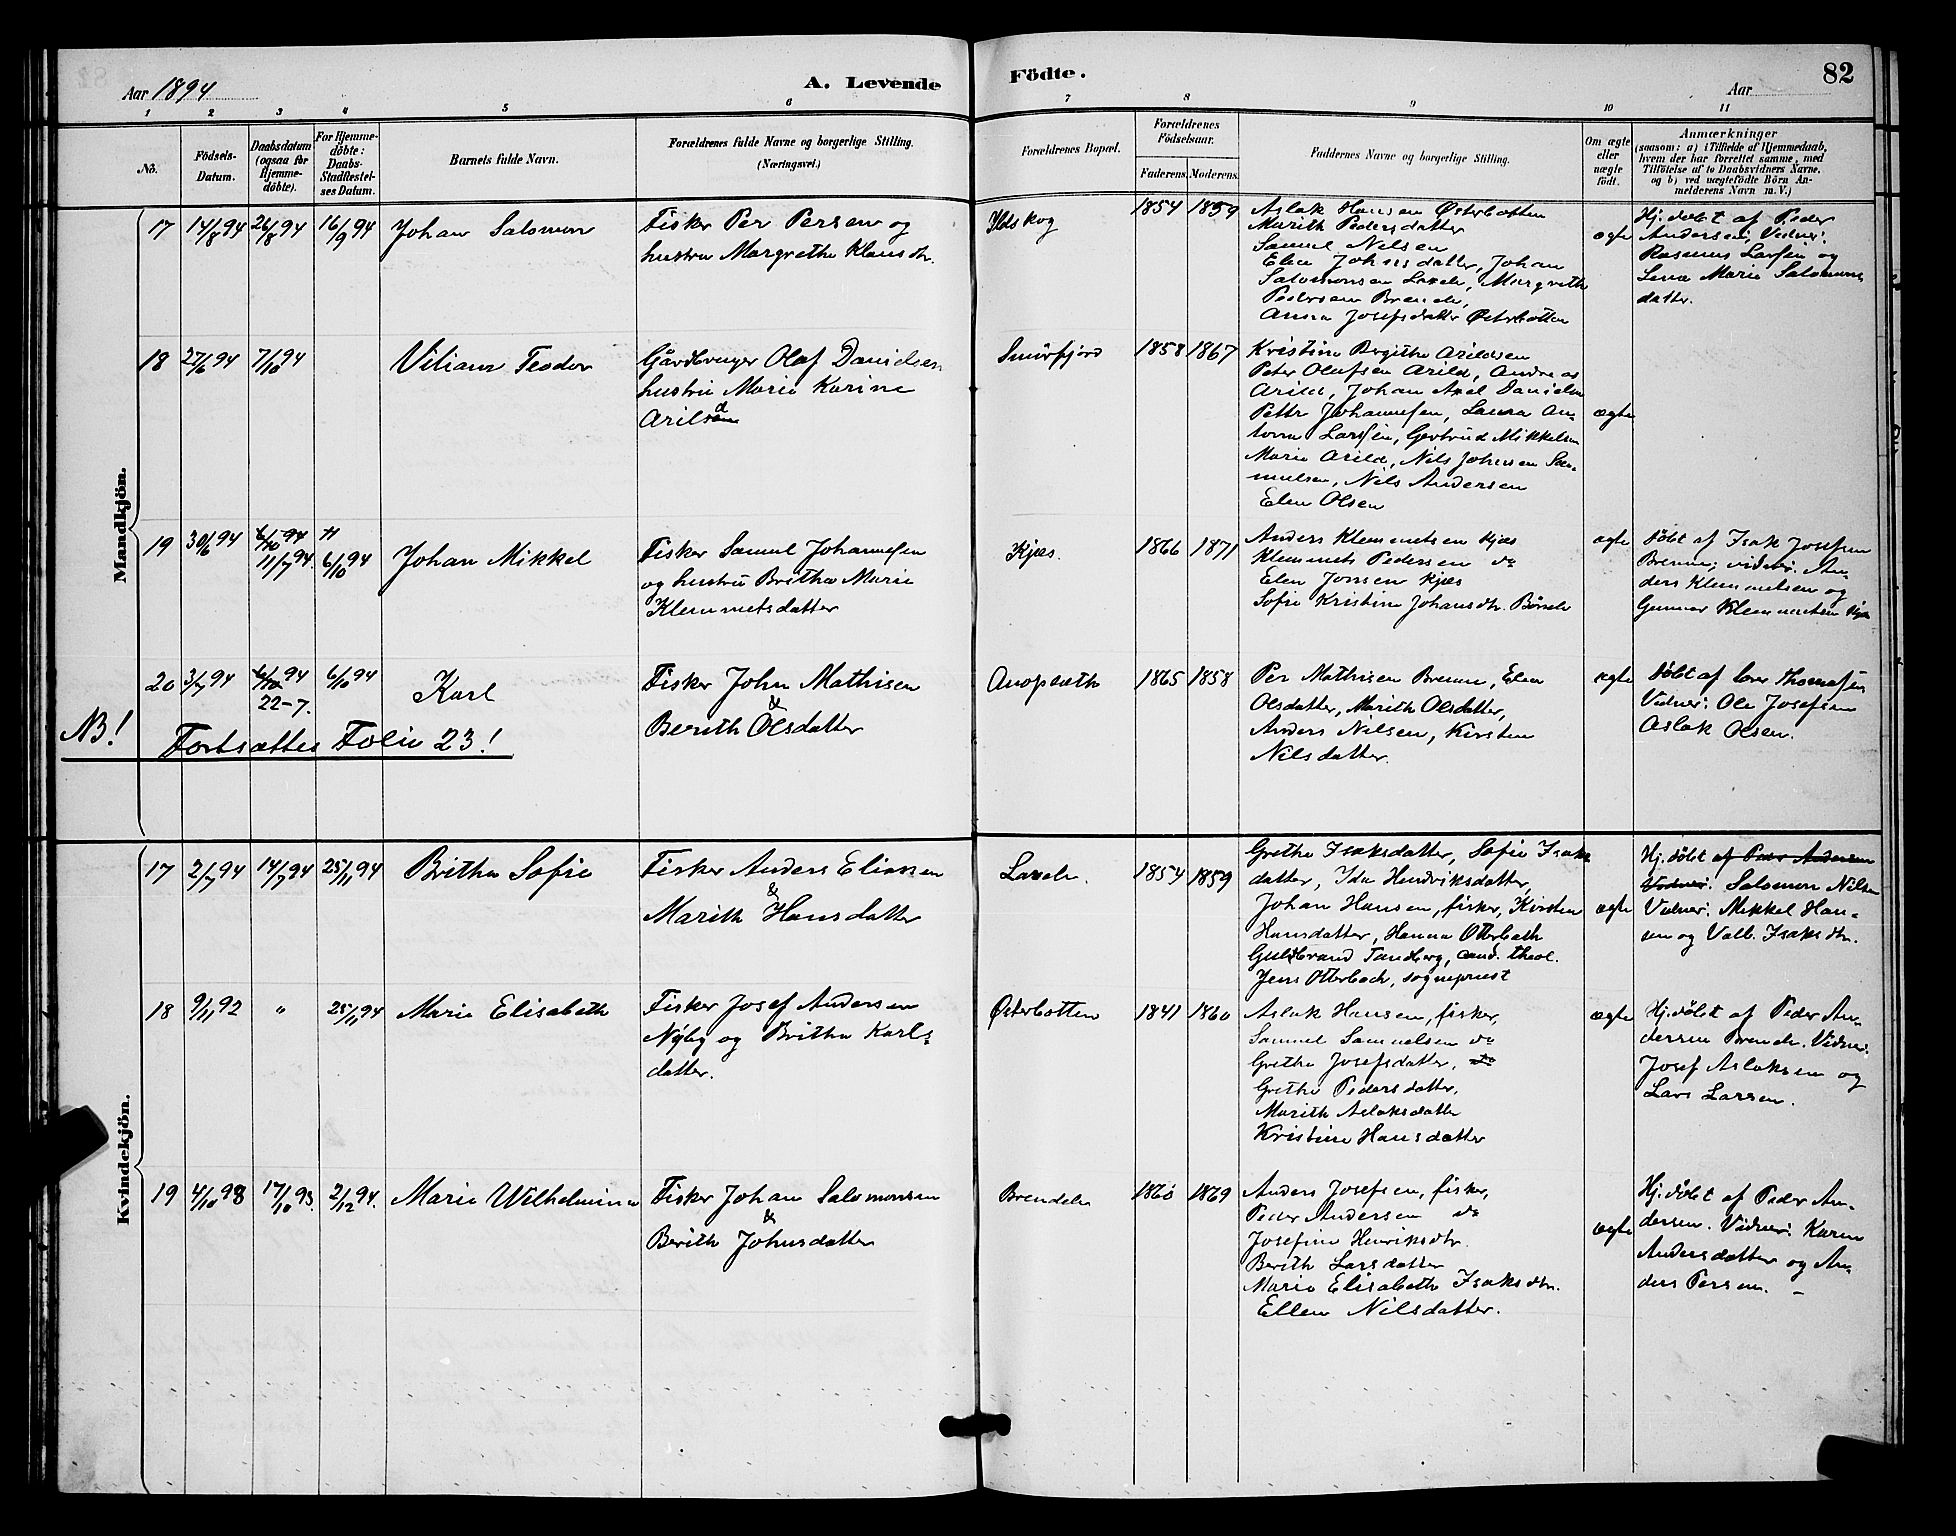 Aar 1894
A. Levende
Födte.
Aar
82
1 2 3 4 5 6 7 8 9 10 11
No.
Födsels-
Datum.
Daabsdatum
(ogsaa for
Hjemme-
döbte).
For Hjemme-
döbte:
Daabs-
Stadfæstel-
ses Datum.
Barnets fulde Navn.
Forældrenes fulde Navne og borgerlige Stilling.
(Næringsvei.)
Forældrenes Bopæl.
Forældrenes
Födselsaar.
Faderens. Moderens.
Faddernes Navne og borgerlige Stilling.
Om ægte
eller
uægte
født.
Anmærkninger
(saasom: a) i Tilfælde af Hjemmedaab,
hvem der har forrettet samme, med
Tilföielse af to Daabsvidners Navne,
og b) ved uægtefödte Börn An-
melderens Navn m. V.)
Mandkjön.
17 14/8 94 26/8 94 16/9 94
Johan Salomon
Fisker Per Persen og
hustru Margrethe Klausdtr.
Ildskog
1854 1859
Aslak Hansen Østerbotten
Marith Pedersdatter
Samuel Nilsen
Elen Johnsdatter, Johan
Salomonsen Laxelv, Margrethe
Pedersen Brendelv,
Anna Josefsdatter Østerbotten
ægte
Hj. døbt af Peder
Andersen; Vidner:
Rasmus Larsen og
Lena Marie Salomons
datter.
18 27/6 94 7/10 94
Viliam Teodor
Gårdbruger Olaf Danielsen
hustru Marie Karine
Arild
Smörfjord
1858 1867
Kristine Birgithe Arildsen
Peter Olafsen Arild, Andreas
Arild, Johan Axel Danielsen
Petter Johannesen, Laura An-
tona Larsen, Gertrud Mikkelsen
Marie Arild, Nils Johnsen Sa-
muelsen, Nils Andersen
Elen Olsen
ægte
19 30/6 94 6/10 94 "
11/7 94. 6/10 94
Johan Mikkel
Fisker Samuel Johannesen
og hustru Britha Marie
Klemmetsdatter
Kjæs.
1866 1871
Anders Klemmetsen Kjæs
Klemmet Pedersen do
Elen Jonsen Kjæs
Sofie Kristine Johansdtr. Börselv
ægte
Döbt af Isak Josefsen
Brenna; vidner: An-
ders Klemmetsen og
Gunnar Klemmetsen Kjæs
20 3/7 94 6/10 94 6/10 94
22-7.
Karl
Fisker John Mathisen
&
Berith Olsdatter
1865 1858
Per Mathisen Brenna, Elen
Olsdatter, Marith Olsdatter,
Anders Nilsen, Kirsten
Nilsdatter.
ægte
Döbt af Iver Thomasen
Vidner: Ole Josefsen
Aslak Olsen.
NB! Fortsættes Folio 23!
Kvindekjön.
17 2/7 94 14/7 94 25/11 94
Britha Sofie
Fisker Anders Eliassen
&
Marith Hansdatter
Laxelv.
1854 1859
Grethe Isaksdatter, Sofie Isaks
datter, Ida Hendriksdatter,
Johan Hansen, fisker, Kirsten
Hansdatter, Hanna Otterbech
Guldbrand Tandberg, cand. theol.
Jens Otterbech, sogneprest
ægte
Hj. døbt af Peder Andersen
Vidner: Salomon Nilsen
Vidner: Mikkel Han-
sen og Valb. Isaksdtr.
18 9/11 92 " 25/11 94
Marie Elisabeth
Fisker Josef Andersen
Nyby og Britha Karls-
datter.
Østerbotten
1841 1860
Aslak Hansen, fisker,
Samuel Samuelsen do
Grethe Josefsdatter, do
Grethe Pedersdatter,
Marith Aslaksdatter
Kristine Hansdatter
ægte
Hj. døbt af Peder An-
dersen Brendelv. Vidner:
Josef Aslaksen og
Lars Larsen.
19 4/10 93 17/10 93. 2/12 94.
Marie Wilhelmina
Fisker Johan Salomonsen
&
Berith Johnsdatter
Brendelv
1860 1869
Anders Josefsen, fisker,
Peder Andersen do
Josefine Henriksdtr.
Berith Larsdatter
Marie Elisabeth Isaksdtr.
Ellen Nilsdatter.
ægte
Hj. døbt af Peder An-
dersen. Vidner: Karen
Andersdatter og An-
ders Persen. –